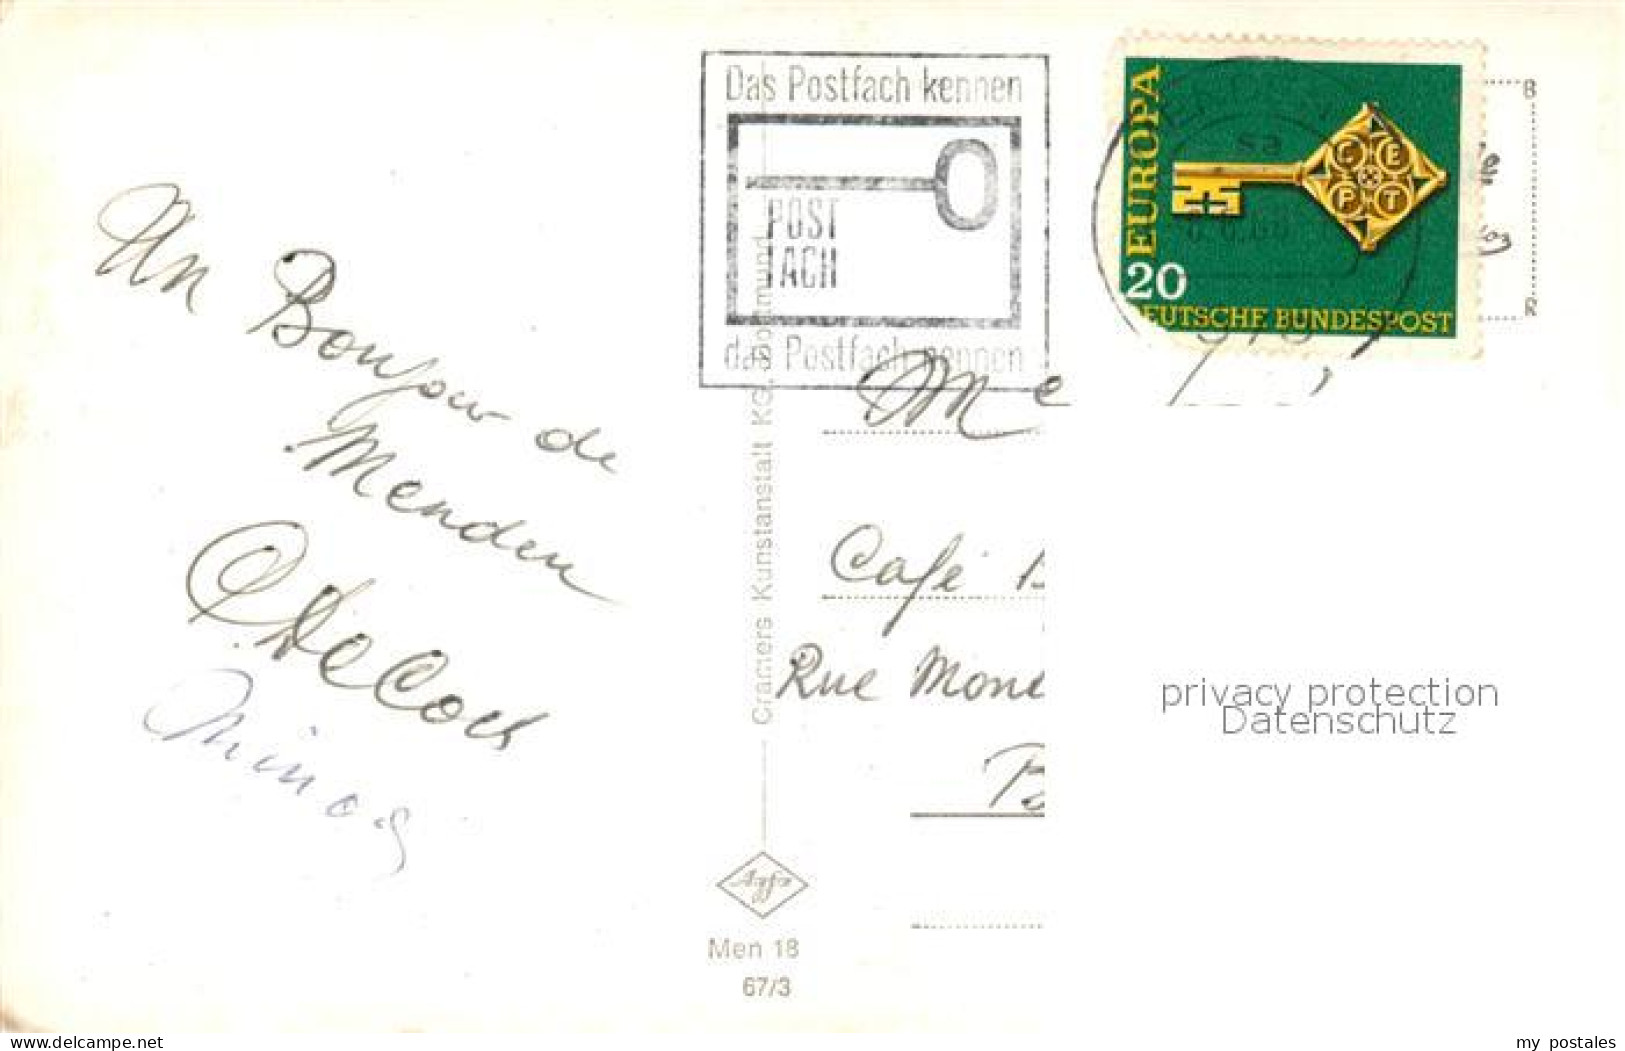 Un Bonjour de
Menden
Das Postfach kennen
POST
FACH
das Postfach nennen
EUROPA
CEPT
20
DEUTSCHE BUNDESPOST
sa
Me
Café
Rue Mon
Cramers Kunstanstalt KG. Dortmund
Agfa
Men 18
67/3
privacy protection
Datenschutz
www.delcampe.net
my_postales